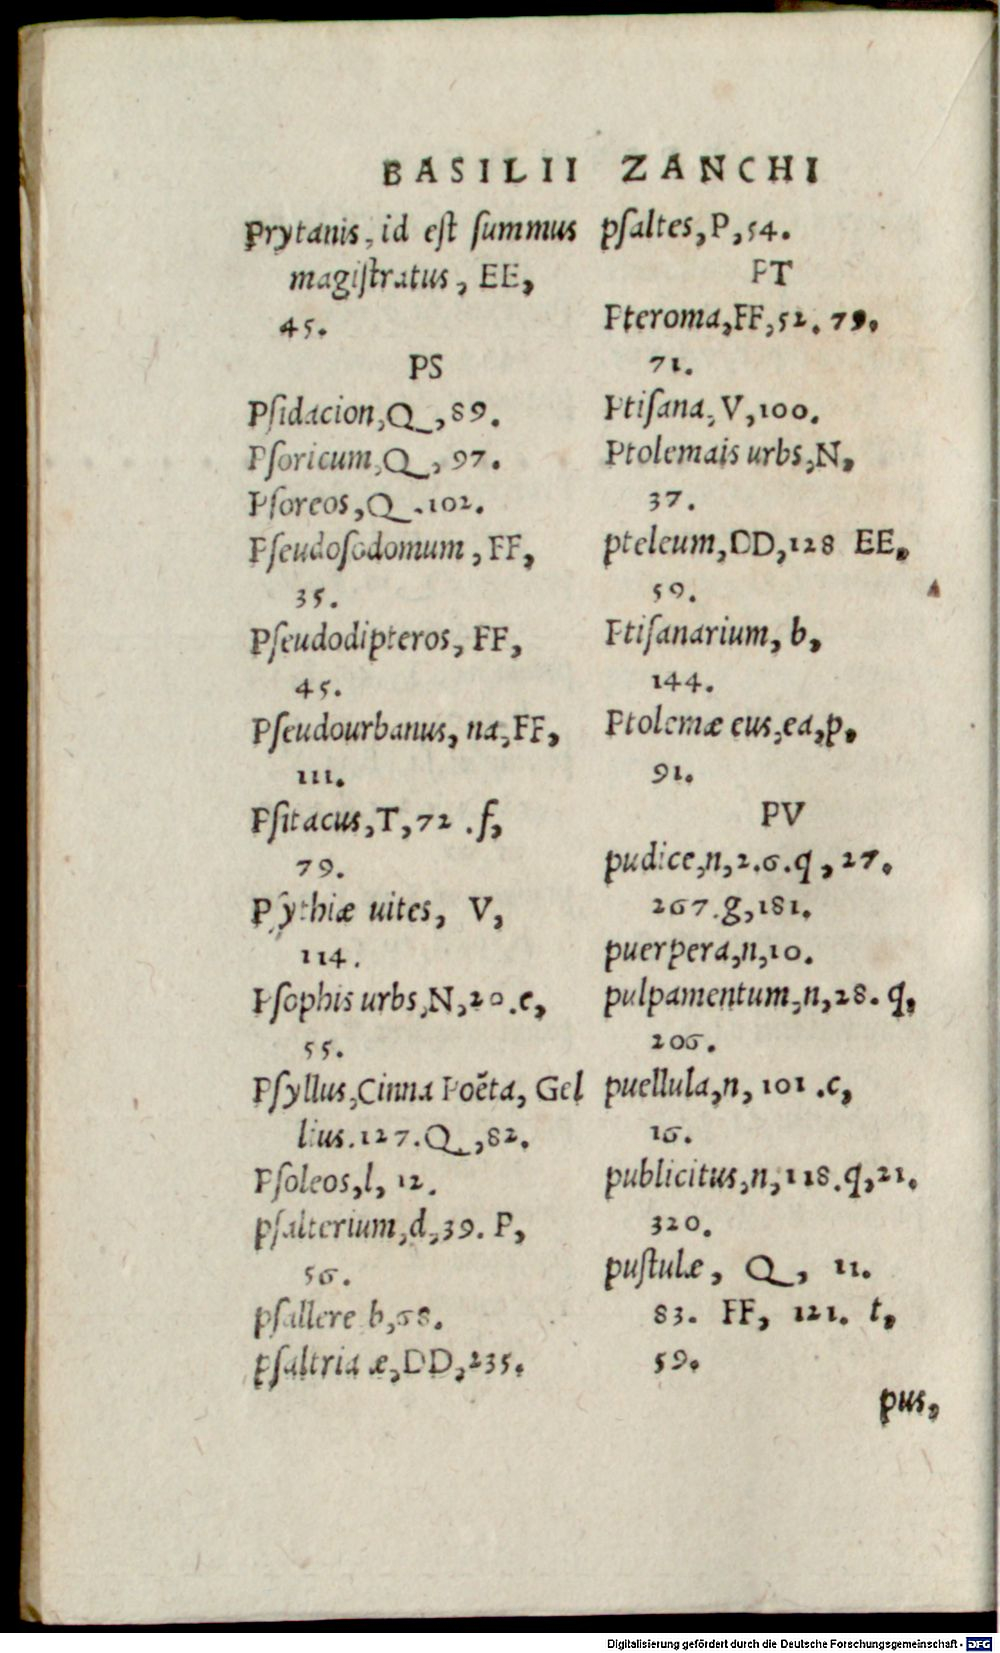 BASILII ZANCHI
Prytanis, id est ſummus
magiſtratus, EE,
45.
PS
Pſidacion, Q, 89.
Pſoricum, Q, 97.
Pſoreos, Q. 102.
Pſeudoſodomum, FF,
35.
Pſeudodipteros, FF,
45.
Pſeudourbanus, na, FF,
111.
Pſitacus, T, 72. f,
79.
Pſythiæ uites, V,
114.
Pſophis urbs, N, 20. c,
55.
Pſyllus, Cinna Poëta, Gel
lius. 127. Q, 82.
Pſoleos, l, 12.
pſalterium, d, 39. P,
56.
pſallere b, 68.
pſaltria æ, DD, 235.
pſaltes, P, 54.
PT
Pteroma, FF, 52. 79.
71.
Ptiſana, V, 100.
Ptolemais urbs, N,
37.
pteleum, DD, 128 EE,
59.
Ptiſanarium, b,
144.
Ptolemæ eus, ea, p,
91.
PV
pudice, n, 2.6. q, 27.
267. g, 181.
puerpera, n, 10.
pulpamentum, n, 28. q,
206.
puellula, n, 101. c,
16.
publicitus, n, 118. q, 21.
320.
puſtulæ, Q, 11.
83. FF, 121. t,
59.
pus,
Digitalisierung gefördert durch die Deutsche Forschungsgemeinschaft - DFG